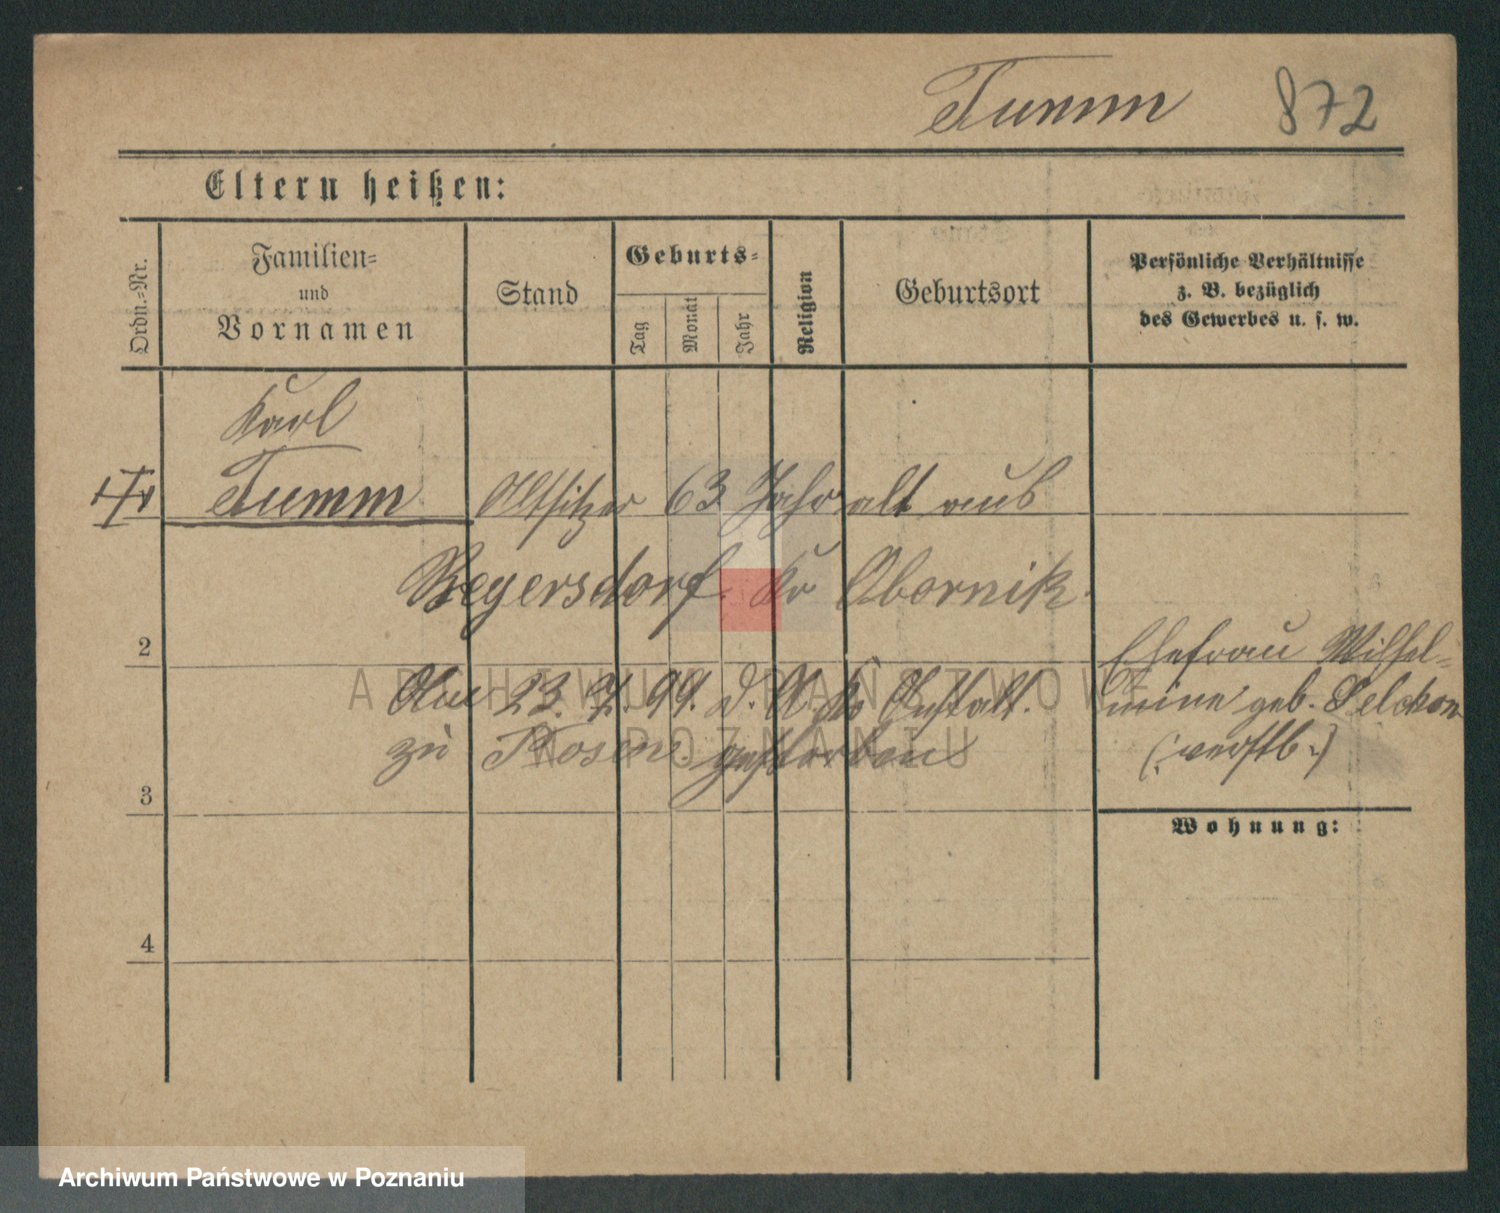 Tumm 872
Eltern heißen:
Ordn.-Nr.
Familien-
und
Vornamen
Stand
Geburts-
Tag
Monat
Jahr
Religion
Geburtsort
Persönliche Verhältnisse
z. B. bezüglich
des Gewerbes u. s. w.
Karl
Tumm Altsitzer 63 Jahr alt aus
Beyersdorf Kr Obornik.
2
Ehefrau Wilhel-
Am 23. 99. d. A. Anstalt.
mine geb. Selckow
zu Posen gestorben
(: verstb :)
3
Wohnung:
4
ARCHIWUM PAŃSTWOWE
W POZNANIU
Archiwum Państwowe w Poznaniu